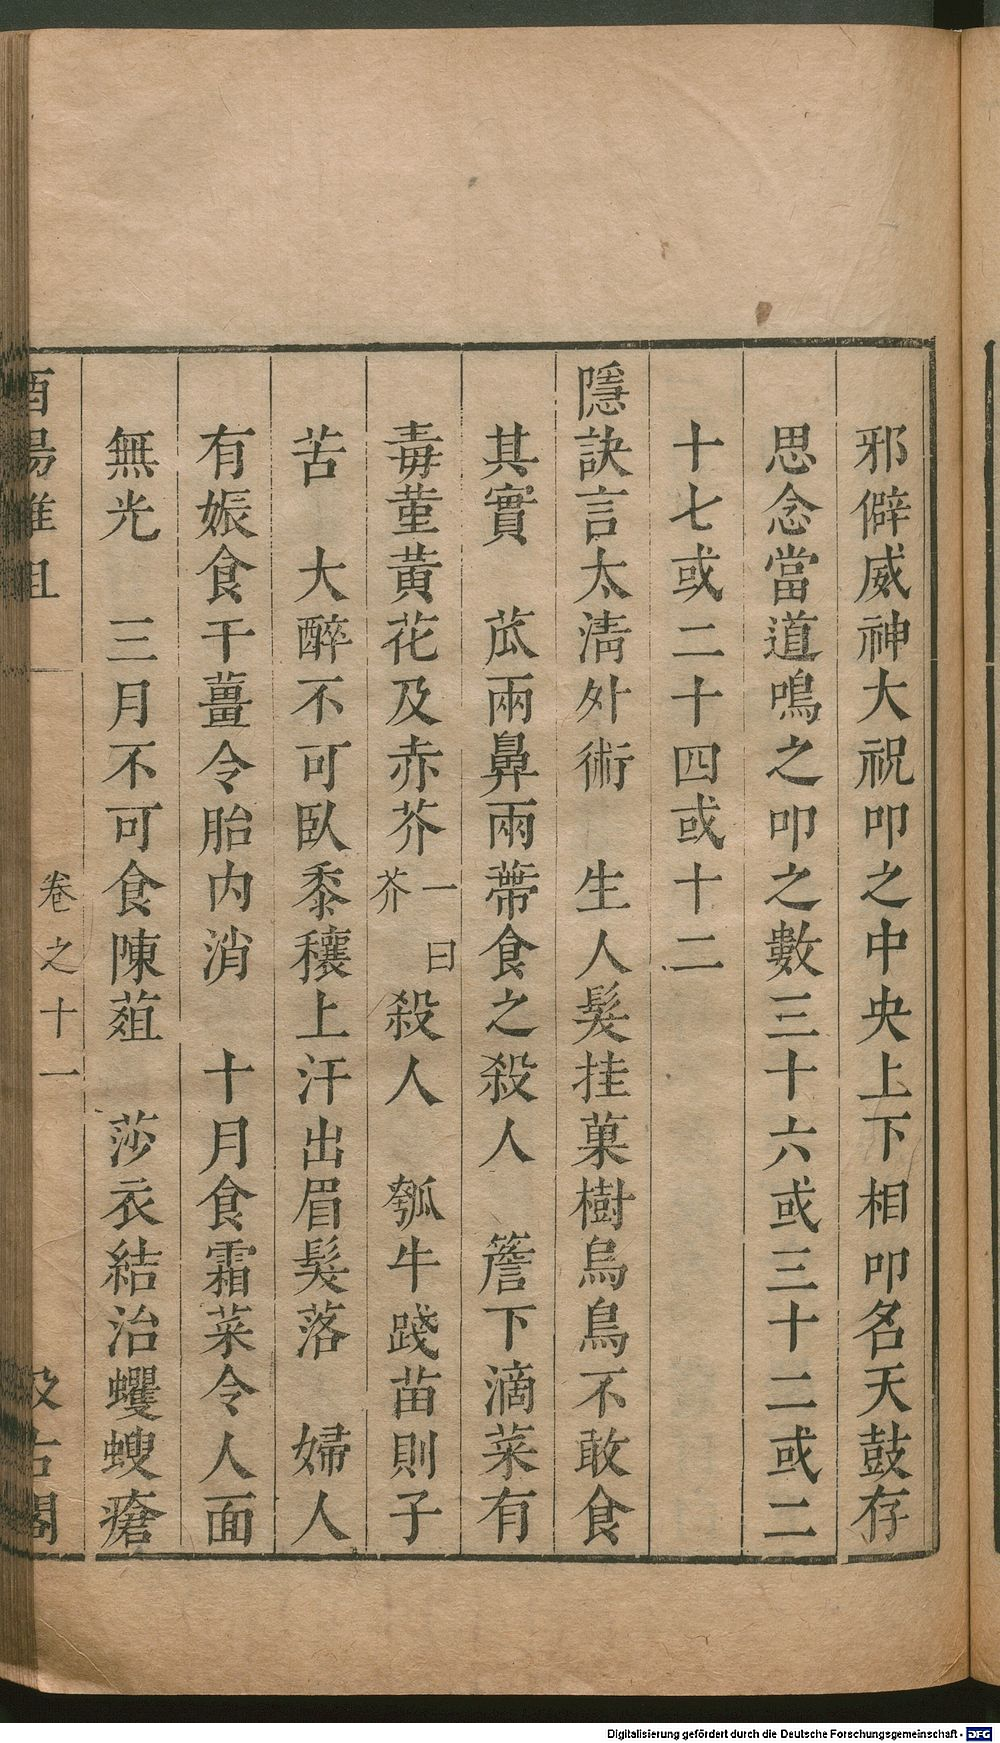 邪僻威神大祝叩之中央上下相叩名天鼓存
思念當道鳴之叩之數三十六或三十二或二
十七或二十四或十二
隱訣言太淸外術　生人髮挂菓樹烏鳥不敢食
其實　苽兩鼻兩蔕食之殺人　簷下滴菜有
毒菫黃花及赤芥一曰芥殺人　瓠牛踐苗則子
苦　大醉不可臥黍穰上汗出眉髮落　婦人
有娠食干薑令胎內消　十月食霜菜令人面
無光　三月不可食陳葅　莎衣結治蠼螋瘡
酉陽雜俎　卷之十一　汲古閣
Digitalisierung gefördert durch die Deutsche Forschungsgemeinschaft - DFG